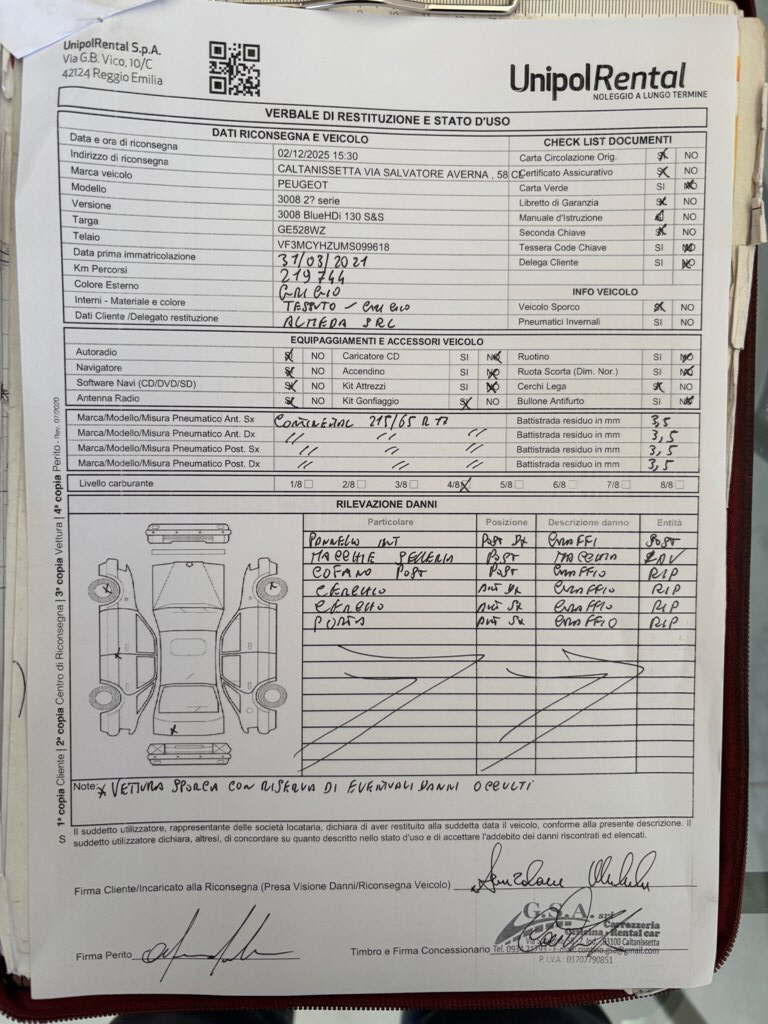 UnipolRental S.p.A.
Via G.B. Vico, 10/C
42124 Reggio Emilia
UnipolRental
NOLEGGIO A LUNGO TERMINE
VERBALE DI RESTITUZIONE E STATO D'USO
DATI RICONSEGNA E VEICOLO
Data e ora di riconsegna 02/12/2025 15:30
Indirizzo di riconsegna CALTANISSETTA VIA SALVATORE AVERNA , 58 CL
Marca veicolo PEUGEOT
Modello 3008 2? serie
Versione 3008 BlueHDi 130 S&S
Targa GE528WZ
Telaio VF3MCYHZUMS099618
Data prima immatricolazione 31/03/2021
Km Percorsi 219744
Colore Esterno GRIGIO
Interni - Materiale e colore TESSUTO / GRIGIO
Dati Cliente /Delegato restituzione ALMEDA SRL
CHECK LIST DOCUMENTI
Carta Circolazione Orig. SI NO
Certificato Assicurativo SI NO
Carta Verde SI NO
Libretto di Garanzia SI NO
Manuale d'Istruzione SI NO
Seconda Chiave SI NO
Tessera Code Chiave SI NO
Delega Cliente SI NO
INFO VEICOLO
Veicolo Sporco SI NO
Pneumatici Invernali SI NO
EQUIPAGGIAMENTI E ACCESSORI VEICOLO
Autoradio SI NO Caricatore CD SI NO Ruotino SI NO
Navigatore SI NO Accendino SI NO Ruota Scorta (Dim. Nor.) SI NO
Software Navi (CD/DVD/SD) SI NO Kit Attrezzi SI NO Cerchi Lega SI NO
Antenna Radio SI NO Kit Gonfiaggio SI NO Bullone Antifurto SI NO
Marca/Modello/Misura Pneumatico Ant. Sx CONTINENTAL 215/65 R 17 Battistrada residuo in mm 3,5
Marca/Modello/Misura Pneumatico Ant. Dx // // // Battistrada residuo in mm 3,5
Marca/Modello/Misura Pneumatico Post. Sx // // // Battistrada residuo in mm 3,5
Marca/Modello/Misura Pneumatico Post. Dx // // // Battistrada residuo in mm 3,5
Livello carburante 1/8 2/8 3/8 4/8 5/8 6/8 7/8 8/8
RILEVAZIONE DANNI
Particolare Posizione Descrizione danno Entità
PANNELLO INT POST SX GRAFFI SOST
MACCHIE SELLERIA POST MACCHIA LAV
COFANO POST POST GRAFFIO RIP
CERCHIO ANT DX GRAFFIO RIP
CERCHIO ANT SX GRAFFIO RIP
PORTA ANT SX GRAFFIO RIP
Note: x VETTURA SPORCA CON RISERVA DI EVENTUALI DANNI OCCULTI
S Il suddetto utilizzatore, rappresentante delle società locataria, dichiara di aver restituito alla suddetta data il veicolo, conforme alla presente descrizione. Il
suddetto utilizzatore dichiara, altresì, di concordare su quanto descritto nello stato d'uso e di accettare l'addebito dei danni riscontrati ed elencati.
Firma Cliente/Incaricato alla Riconsegna (Presa Visione Danni/Riconsegna Veicolo)
Firma Perito
Timbro e Firma Concessionario
G.S.A. srl
Carrozzeria
Officina Rental car
93100 Caltanissetta
P. IVA: 01707790851
1ª copia Cliente | 2ª copia Centro di Riconsegna | 3ª copia Vettura | 4ª copia Perito - Rev. 07/2020